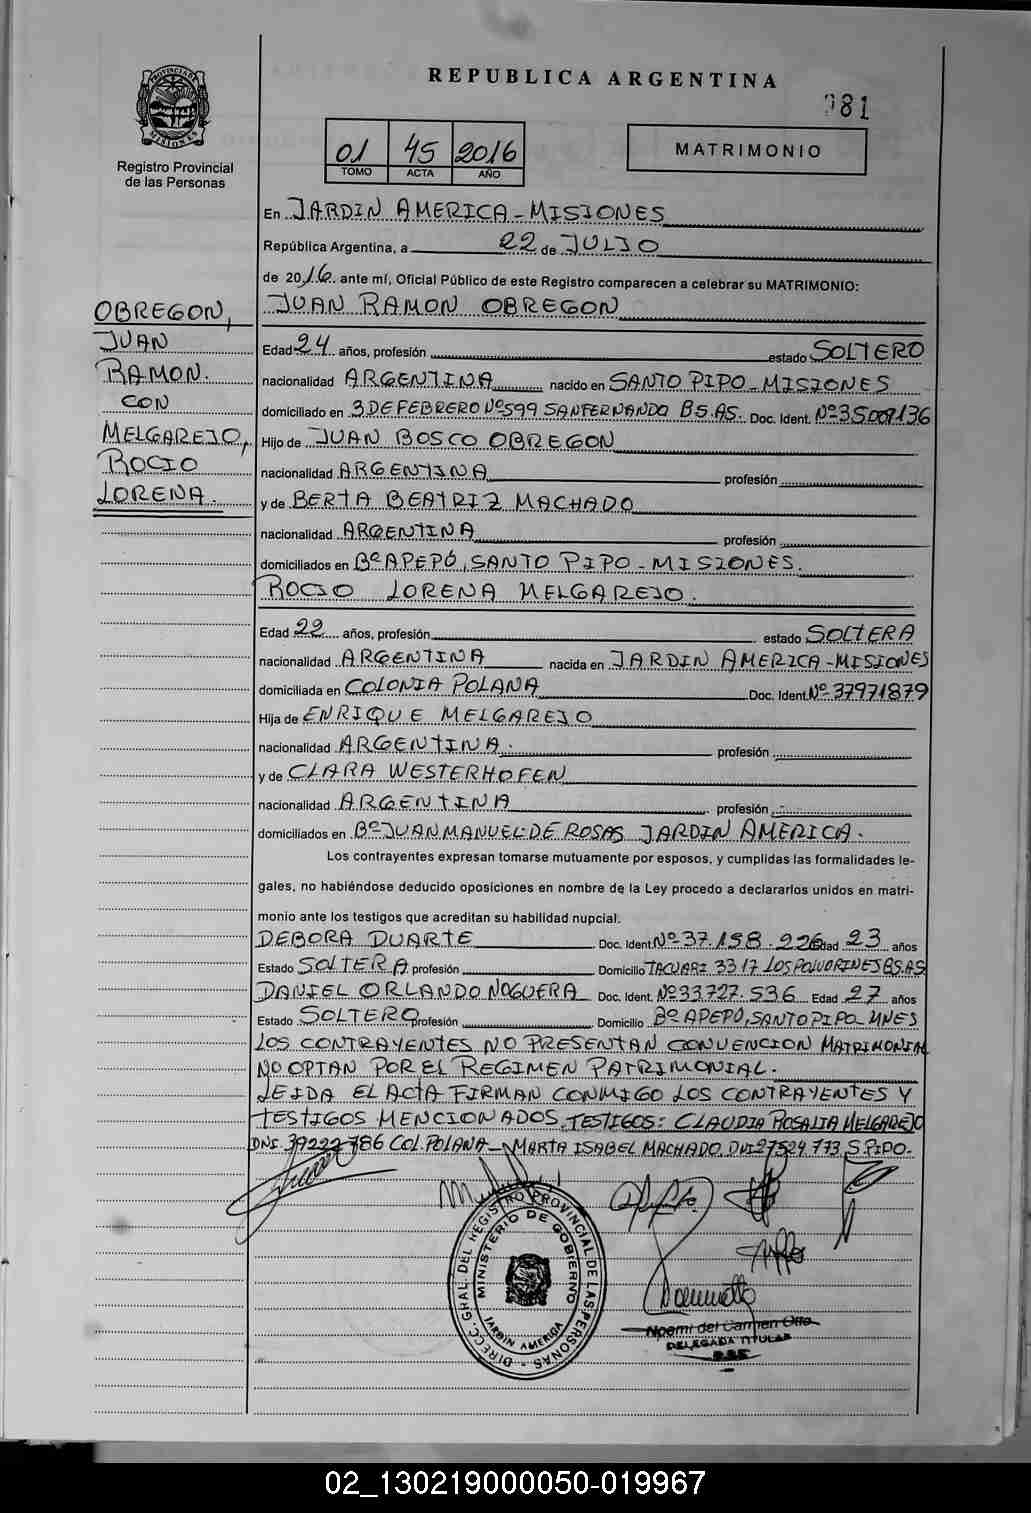 REPUBLICA ARGENTINA
081
PROVINCIA DE MISIONES
Registro Provincial
de las Personas
01 45 2016
TOMO ACTA AÑO
MATRIMONIO
En JARDIN AMERICA - MISIONES
República Argentina, a 22 de JULIO
de 2016 ante mí, Oficial Público de este Registro comparecen a celebrar su MATRIMONIO:
OBREGON,
JUAN
RAMON.
CON
MELGAREJO,
ROCIO
LORENA.
JUAN RAMON OBREGON
Edad 24 años, profesión estado SOLTERO
nacionalidad ARGENTINA nacido en SANTO PIPO - MISIONES
domiciliado en 3 DE FEBRERO Nº 599 SAN FERNANDO BS.AS. Doc. Ident. Nº 35009136
Hijo de JUAN BOSCO OBREGON
nacionalidad ARGENTINA profesión
y de BERTA BEATRIZ MACHADO
nacionalidad ARGENTINA profesión
domiciliados en Bº APEPÓ, SANTO PIPO - MISIONES.
ROCIO LORENA MELGAREJO.
Edad 22 años, profesión estado SOLTERA
nacionalidad ARGENTINA nacida en JARDIN AMERICA - MISIONES
domiciliada en COLONIA POLANA Doc. Ident. Nº 37971879
Hija de ENRIQUE MELGAREJO
nacionalidad ARGENTINA. profesión
y de CLARA WESTERHOFEN
nacionalidad ARGENTINA profesión
domiciliados en Bº JUAN MANUEL DE ROSAS JARDIN AMERICA.
Los contrayentes expresan tomarse mutuamente por esposos, y cumplidas las formalidades le-
gales, no habiéndose deducido oposiciones en nombre de la Ley procedo a declararlos unidos en matri-
monio ante los testigos que acreditan su habilidad nupcial.
DEBORA DUARTE Doc. Ident. Nº 37.158.226 Edad 23 años
Estado SOLTERA profesión Domicilio TACUARI 3317 LOS POLVORINES BS.AS
DANIEL ORLANDO NOGUERA Doc. Ident. Nº 33.727.536 Edad 27 años
Estado SOLTERO profesión Domicilio Bº APEPÓ, SANTO PIPO - MNES
LOS CONTRAYENTES NO PRESENTAN CONVENCION MATRIMONIAL
NO OPTAN POR EL REGIMEN PATRIMONIAL.
LEIDA EL ACTA FIRMAN CONMIGO LOS CONTRAYENTES Y
TESTIGOS MENCIONADOS. TESTIGOS: CLAUDIA ROSALIA MELGAREJO
DNI. 39222786 COL. POLANA - MARTA ISABEL MACHADO. DNI 27524.773. S. PIPO.
DIRECC. GRAL. DEL REGISTRO PROVINCIAL DE LAS PERSONAS
MINISTERIO DE GOBIERNO
JARDIN AMERICA
Noemi del Carmen Otto
DELEGADA TITULAR
02_130219000050-019967